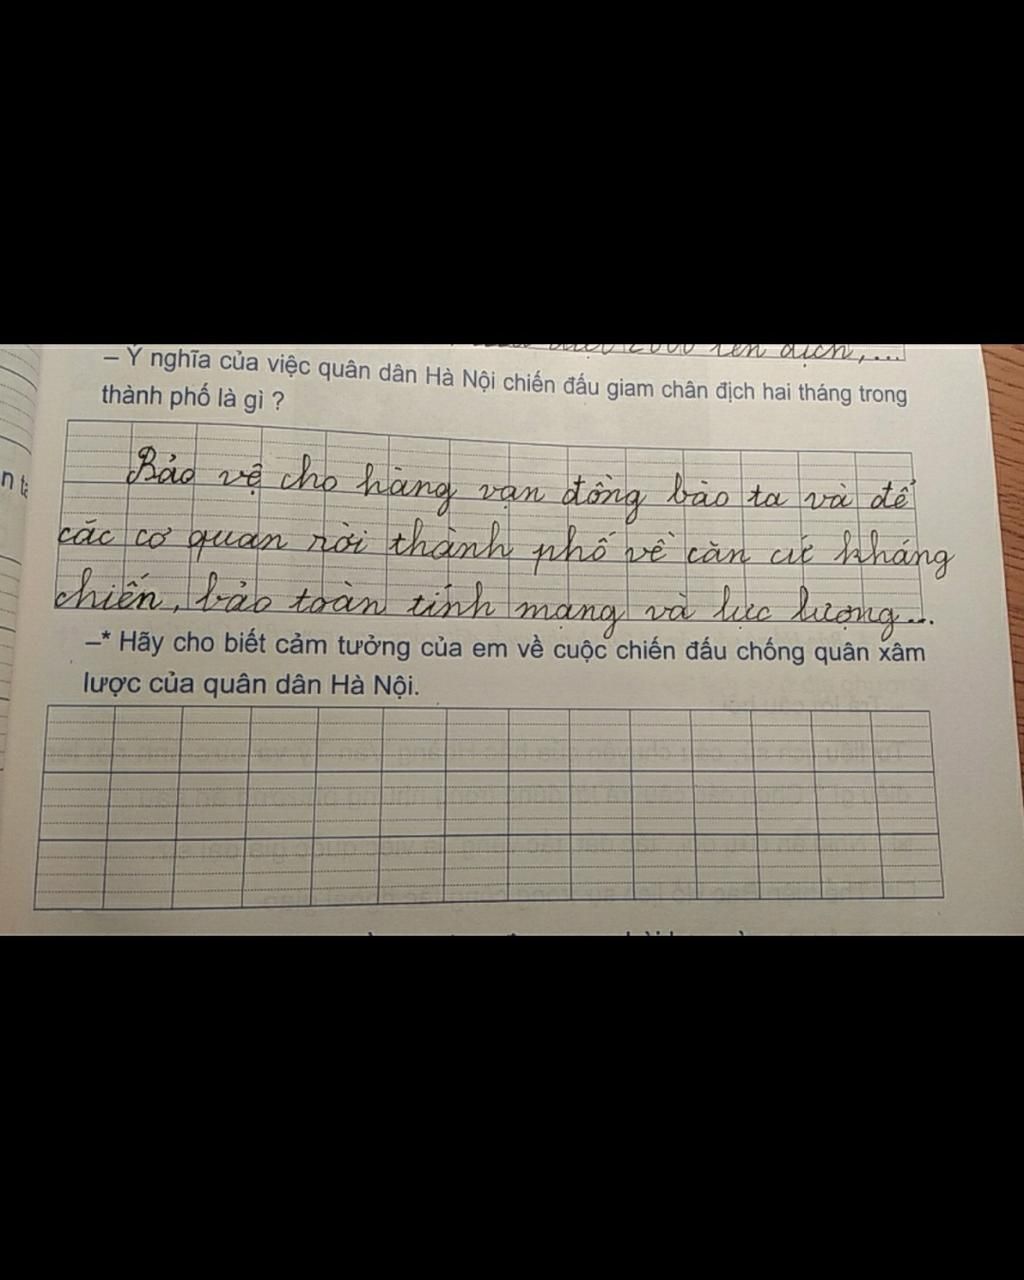 2000 tên địch,...
– Ý nghĩa của việc quân dân Hà Nội chiến đấu giam chân địch hai tháng trong
thành phố là gì ?
Bảo vệ cho hàng vạn đồng bào ta và để
các cơ quan rời thành phố về căn cứ kháng
chiến, bảo toàn tính mạng và lực lượng...
–* Hãy cho biết cảm tưởng của em về cuộc chiến đấu chống quân xâm
lược của quân dân Hà Nội.